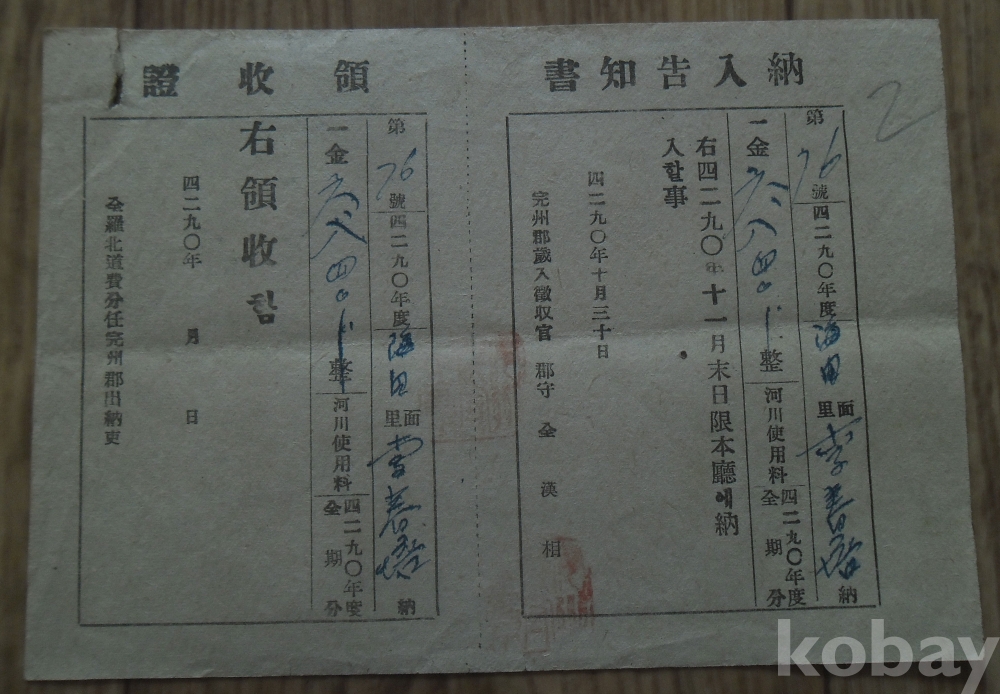 納入告知書
2
第76號 四二九〇年度 面 里 納
一金 八四〇 整 河川使用料 四二九〇年度 全期分
右四二九〇年十一月末日限本廳에納
入할事
四二九〇年十月三十日
完州郡歲入徵收官 郡守 全漢相
領收證
第76號 四二九〇年度 面 里 納
一金 八四〇 整 河川使用料 四二九〇年度 全期分
右領收함
四二九〇年 月 日
全羅北道費分任完州郡出納吏
kobay